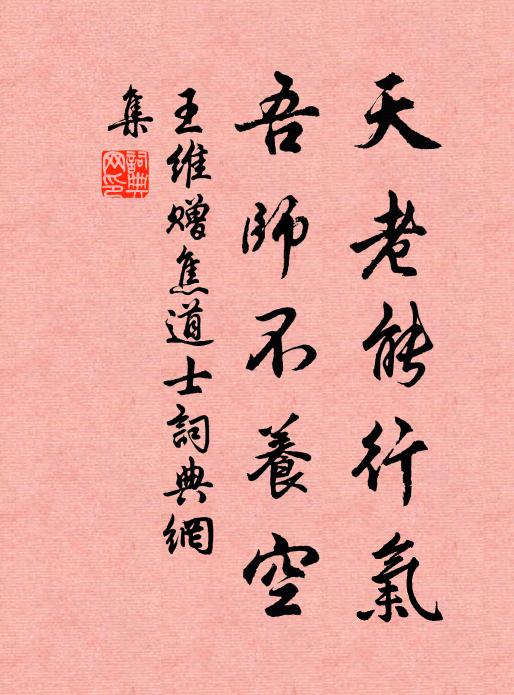 天老能行氣
吾師不養空
王維贈焦道士詞典網
集
詞典
网印